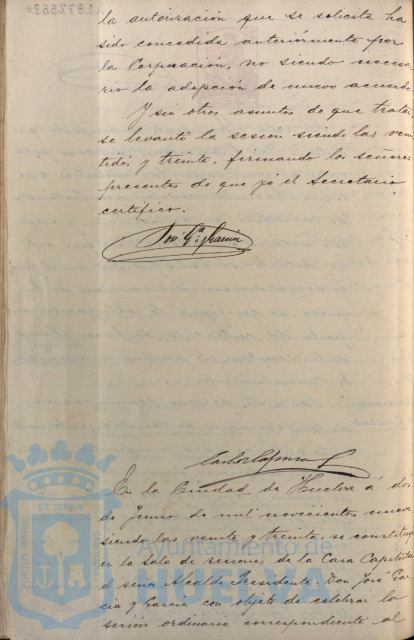 la autorización que se solicita ha
sido concedida anteriormente por
la Corporación, no siendo necesa
rio la adopción de nuevo acuerdo
Y sin otros asuntos de que tratar
se levantó la sesión siendo las vein
tidós y treinta, firmando los señores
presentes de que yó el Secretario
certifico.
José Gª y García
En la Ciudad de Huelva á dos
de Junio de mil novecientos nueve
siendo las veinte y treinta, se constituyó
en la Sala de sesiones de la Casa Capitular
el señor Alcalde Presidente. Don José Gar
cia y Garcia con objeto de celebrar la
sesión ordinaria correspondiente al
PORTUS MARIS ET TERRAE CUSTODIA
Ayuntamiento de
HUELVA